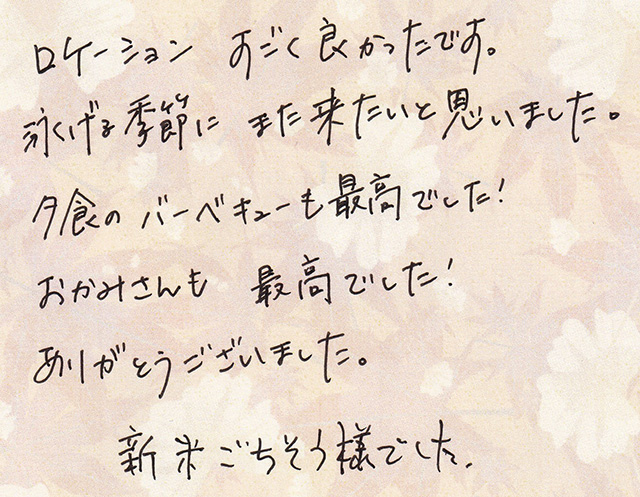 ロケーション すごく良かったです。
泳げる季節に また来たいと思いました。
夕食の バーベキューも最高でした!
おかみさんも 最高でした!
ありがとうございました。
新米ごちそう様でした。